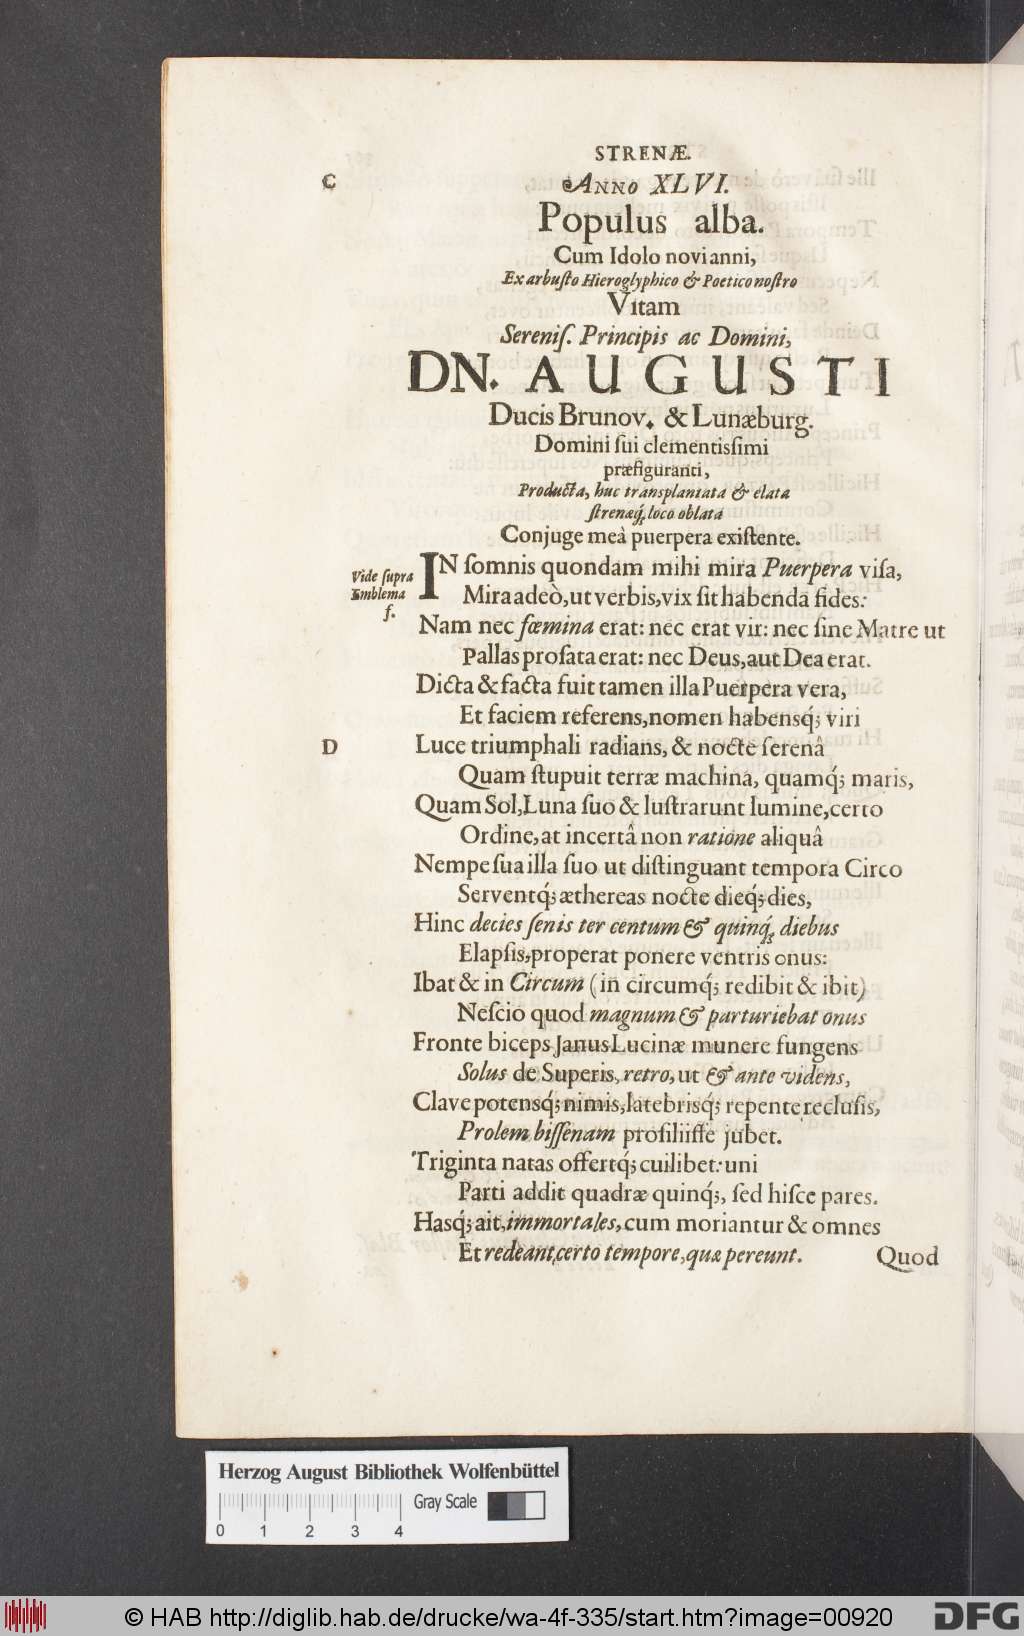 STRENÆ.
C
ANNO XLVI.
Populus alba.
Cum Idolo novi anni,
Ex arbuſto Hieroglyphico & Poetico noſtro
Vitam
Sereniſ. Principis ac Domini,
DN. AUGUSTI
Ducis Brunov. & Lunæburg.
Domini ſui clementiſſimi
præfiguranti,
Producta, huc transplantata & elata
ſtrenæq́; loco oblata
Conjuge meâ puerpera exiſtente.
Vide ſupra
Emblema
f.
IN ſomnis quondam mihi mira Puerpera viſa,
Mira adeò, ut verbis, vix ſit habenda fides:
Nam nec fœmina erat: nec erat vir: nec ſine Matre ut
Pallas proſata erat: nec Deus, aut Dea erat.
Dicta & facta fuit tamen illa Puerpera vera,
Et faciem referens, nomen habensq́; viri
D
Luce triumphali radians, & nocte ſerenâ
Quam ſtupuit terræ machina, quamq́; maris,
Quam Sol, Luna ſuo & luſtrarunt lumine, certo
Ordine, at incertâ non ratione aliquâ
Nempe ſua illa ſuo ut diſtinguant tempora Circo
Serventq́; æthereas nocte dieq́; dies,
Hinc decies ſenis ter centum & quinq́; diebus
Elapſis, properat ponere ventris onus:
Ibat & in Circum (in circumq́; redibit & ibit)
Neſcio quod magnum & parturiebat onus
Fronte biceps Janus Lucinæ munere fungens
Solus de Superis, retro, ut & ante videns,
Clave potensq́; nimis, latebrisq́; repente recluſis,
Prolem biſſenam proſiliiſſe jubet.
Triginta natas offertq́; cuilibet: uni
Parti addit quadræ quinq́;, ſed hiſce pares.
Hasq́; ait, immortales, cum moriantur & omnes
Et redeant, certo tempore, quæ pereunt.
Quod
Herzog August Bibliothek Wolfenbüttel
Gray Scale
0 1 2 3 4
© HAB http://diglib.hab.de/drucke/wa-4f-335/start.htm?image=00920
DFG